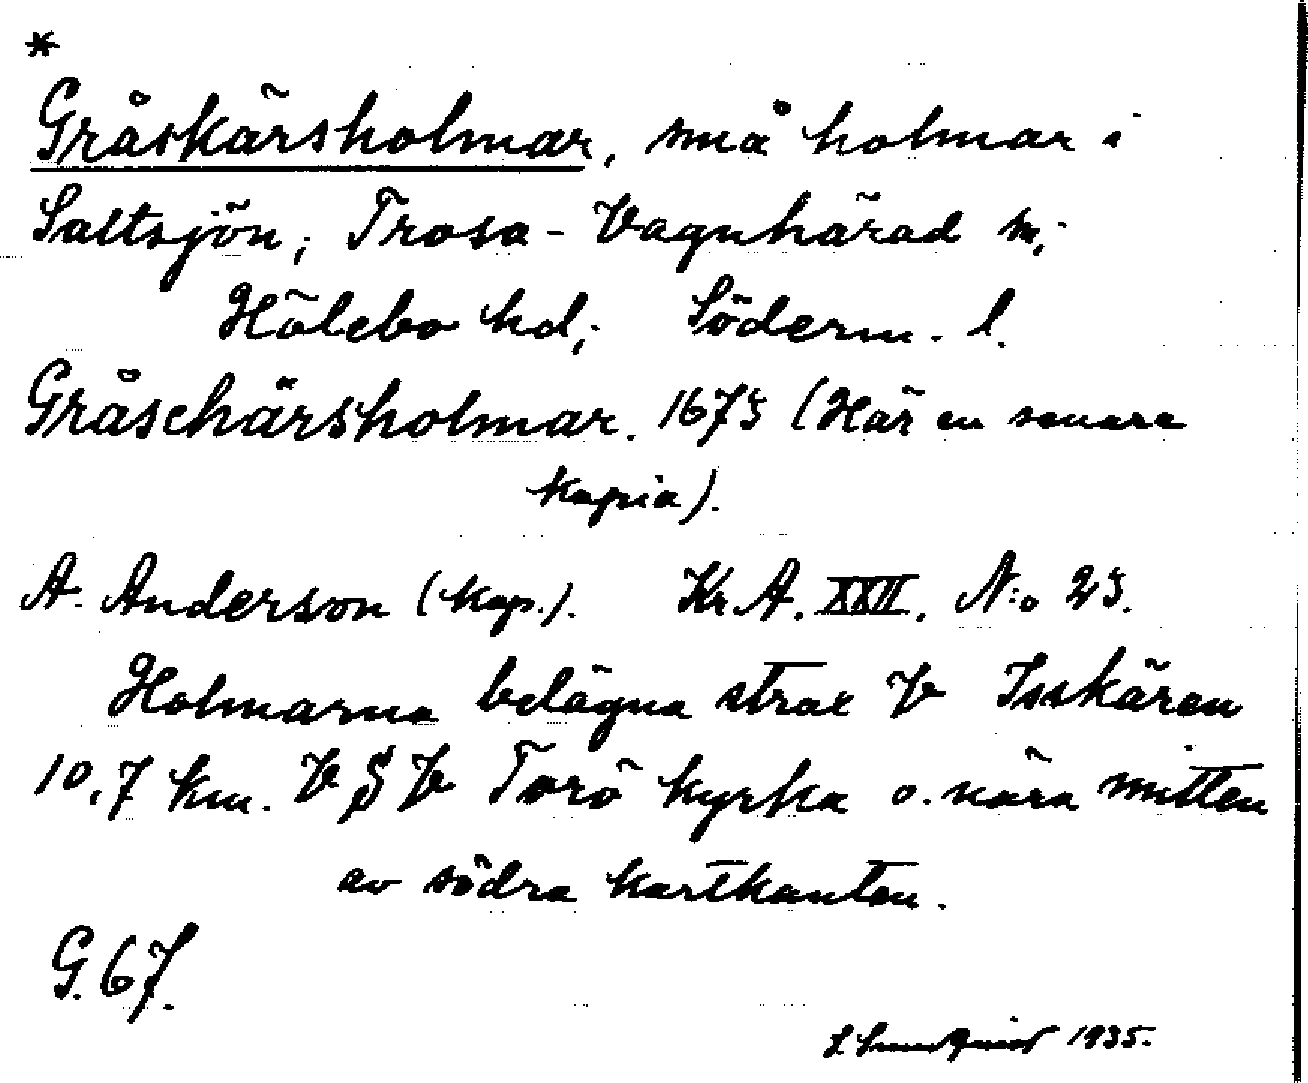 *
Gråskärsholmar, små holmar i
Saltsjön; Trosa-Vagnhärad sn;
Hölebo hd; Söderm. l.
Gråschärsholmar. 1675 (Här en senare
kopia).
A. Anderson (kop.). Kr. A. XXII. N:o 25.
Holmarna belägna strax V Isskären
10,7 km. V S V Torö kyrka o. nära mitten
av södra kartkanten.
G. 67.
1935.